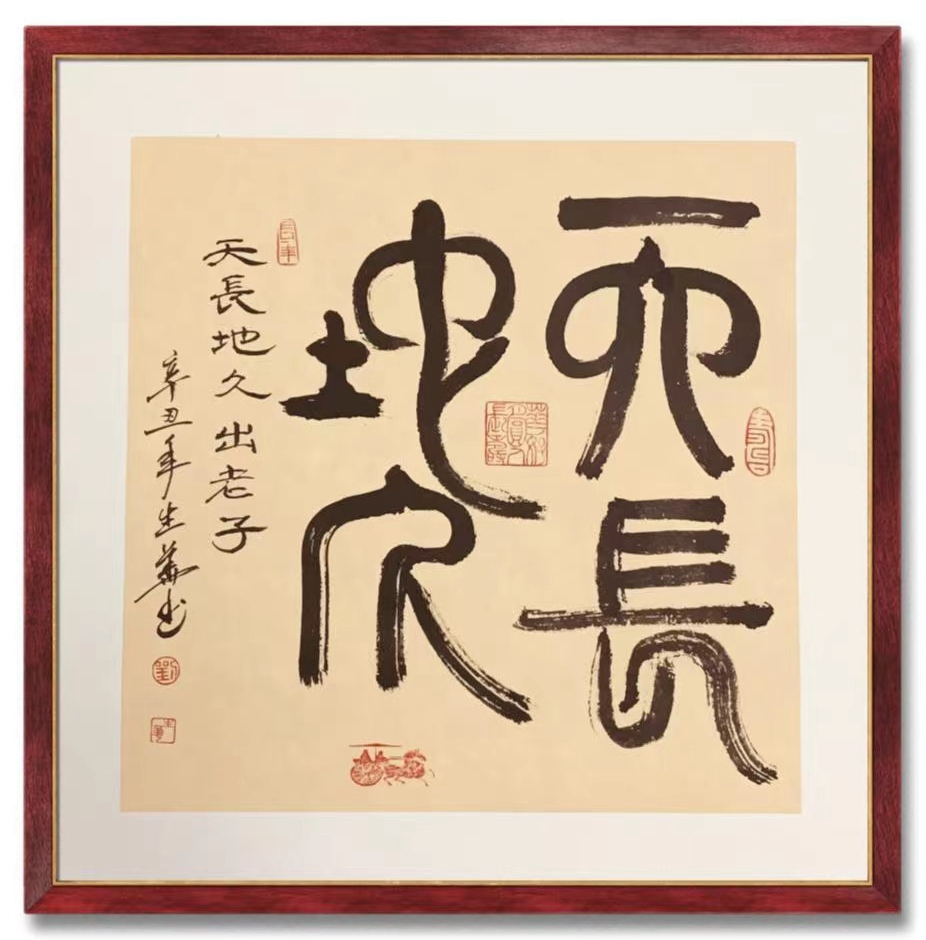 天長
地久
天長地久出老子
辛丑年生華书
劉